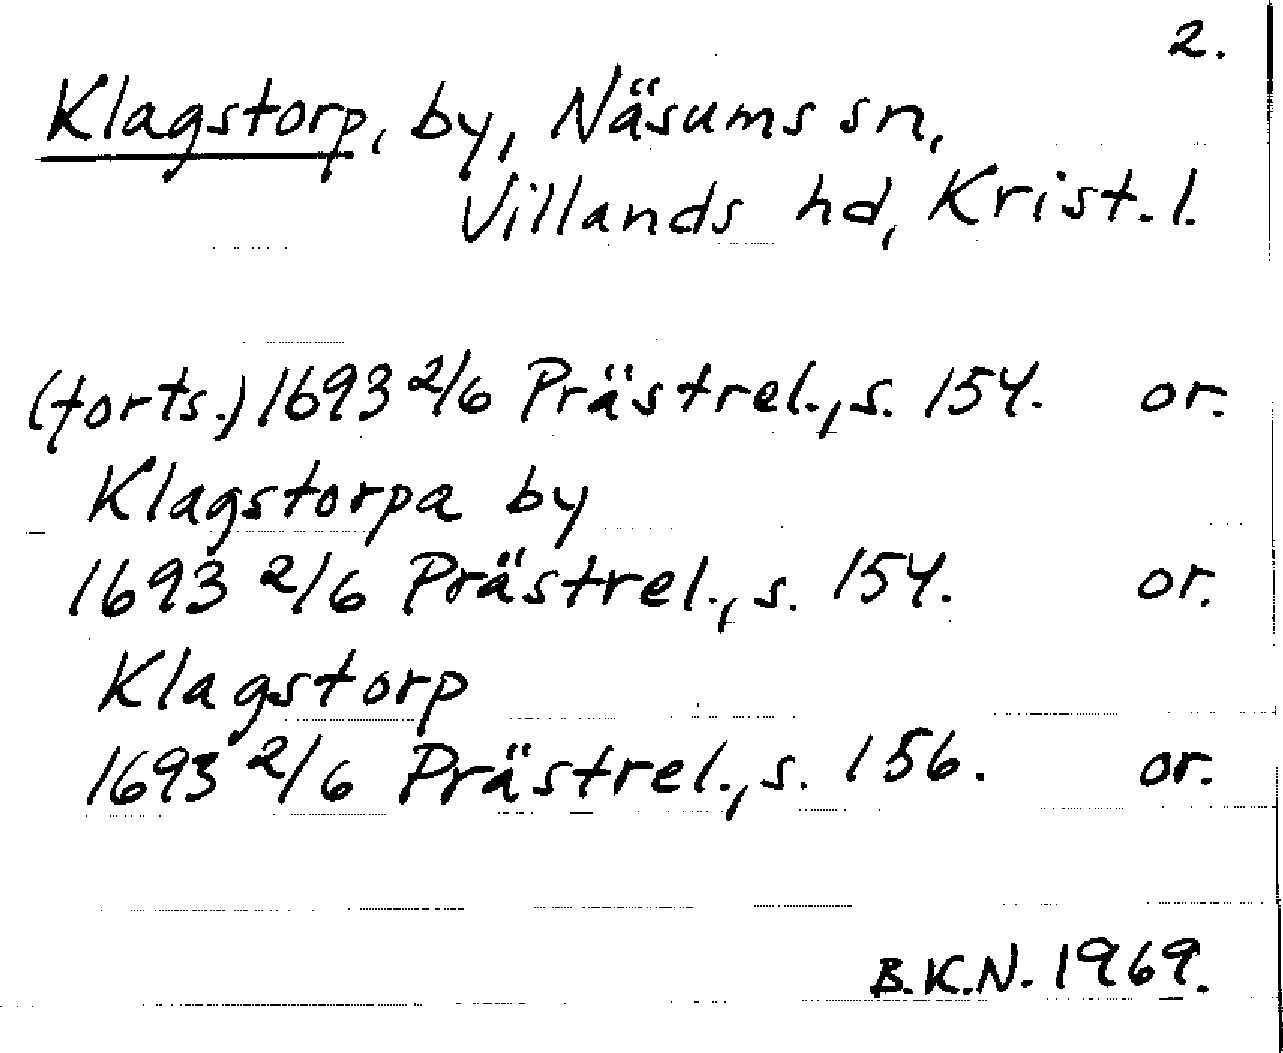 2.
Klagstorp, by, Näsums sn,
Villands hd, Krist. l.
(forts.) 1693 2/6 Prästrel., s. 154. or.
Klagstorpa by
1693 2/6 Prästrel., s. 154. or.
Klagstorp
1693 2/6 Prästrel., s. 156. or.
B.K.N. 1969.